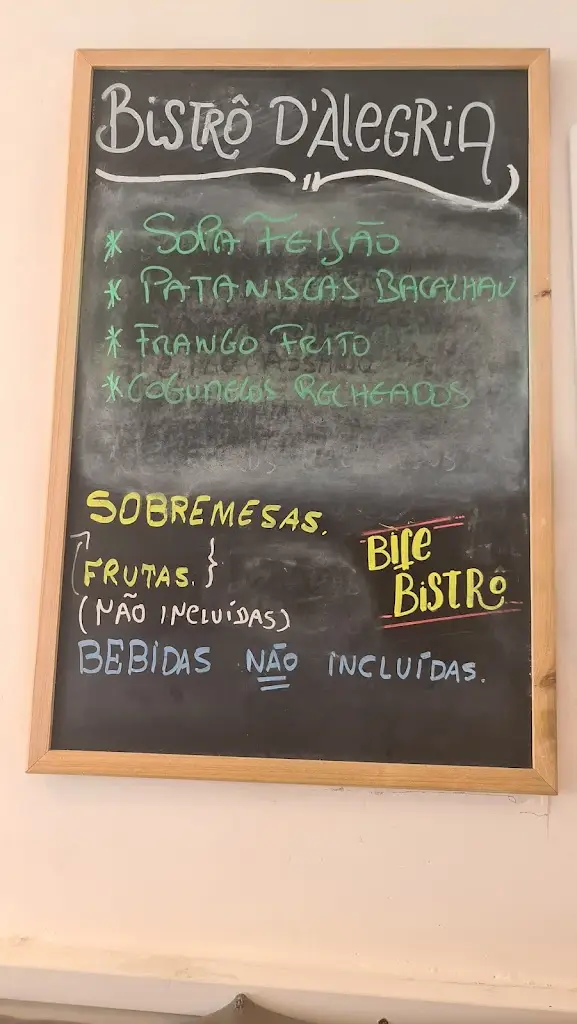 BISTRÔ D'ALEGRIA
* SOPA FEIJÃO
* PATANISCAS BACALHAU
* FRANGO FRITO
* COGUMELOS RECHEADOS
SOBREMESAS.
FRUTAS. }
(NÃO INCLUÍDAS)
BIFE
BISTRÔ
BEBIDAS NÃO INCLUÍDAS.